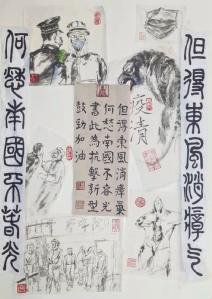 但得東風消瘴气
何愁南國不春光
疫清
但得東風消瘴氣
何愁南國不春光
書此為抗擊新型
鼓勁加油